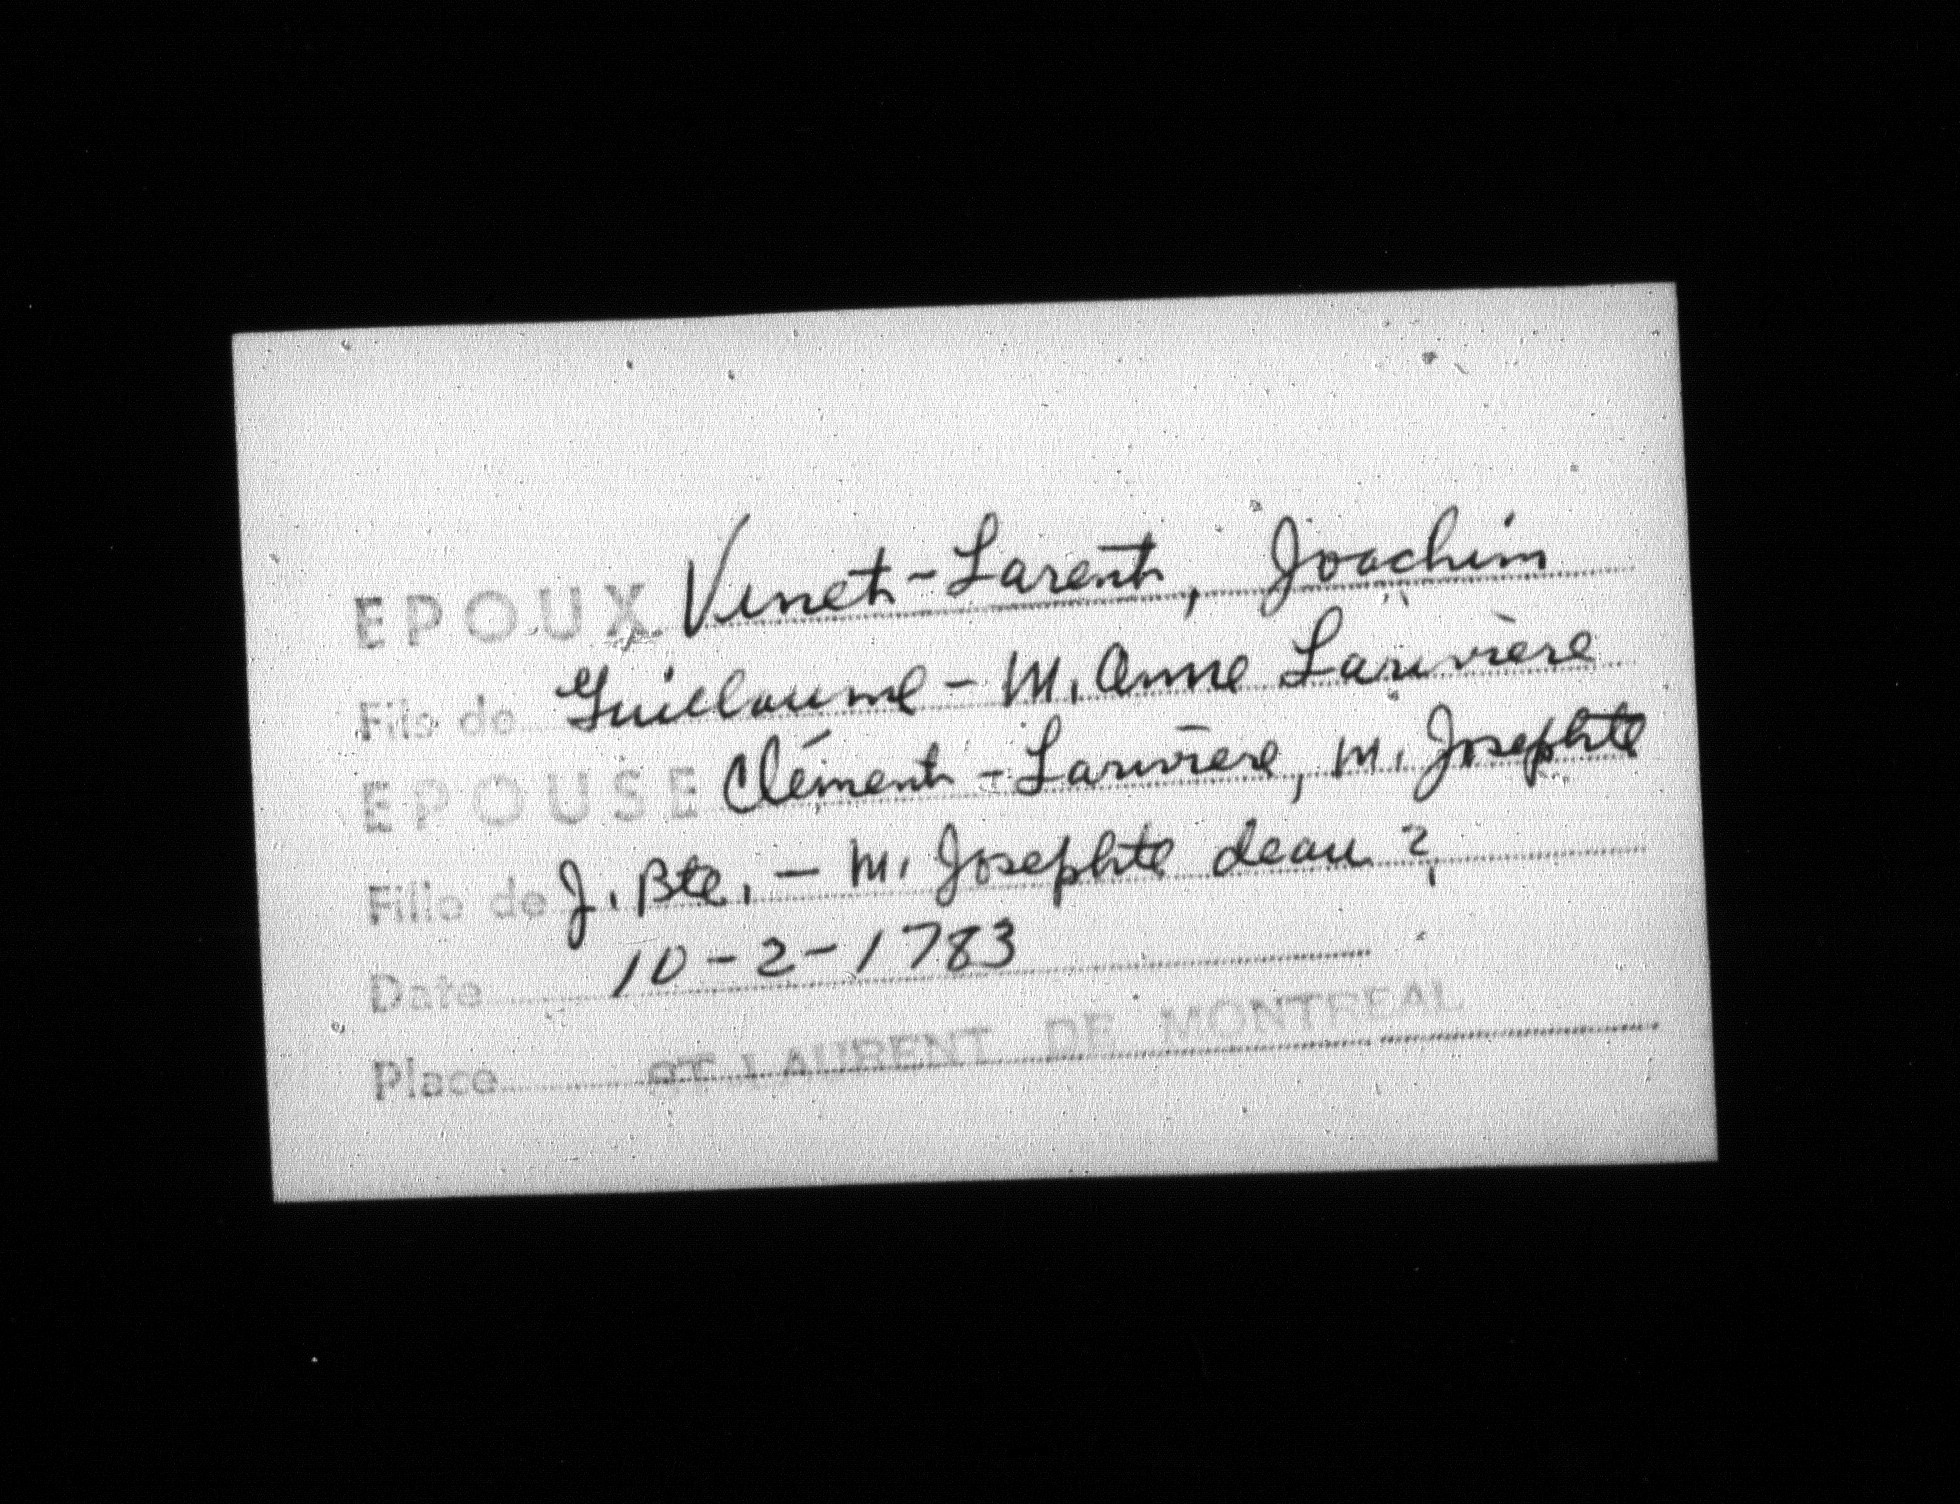 EPOUX Vinet-Larent, Joachim
Fils de Guillaume - M. Anne Larivière
EPOUSE Clément - Larivière, M. Josephte
Fille de J. Bte. - M. Josephte deau ?
Date 10-2-1783
Place ST LAURENT DE MONTREAL